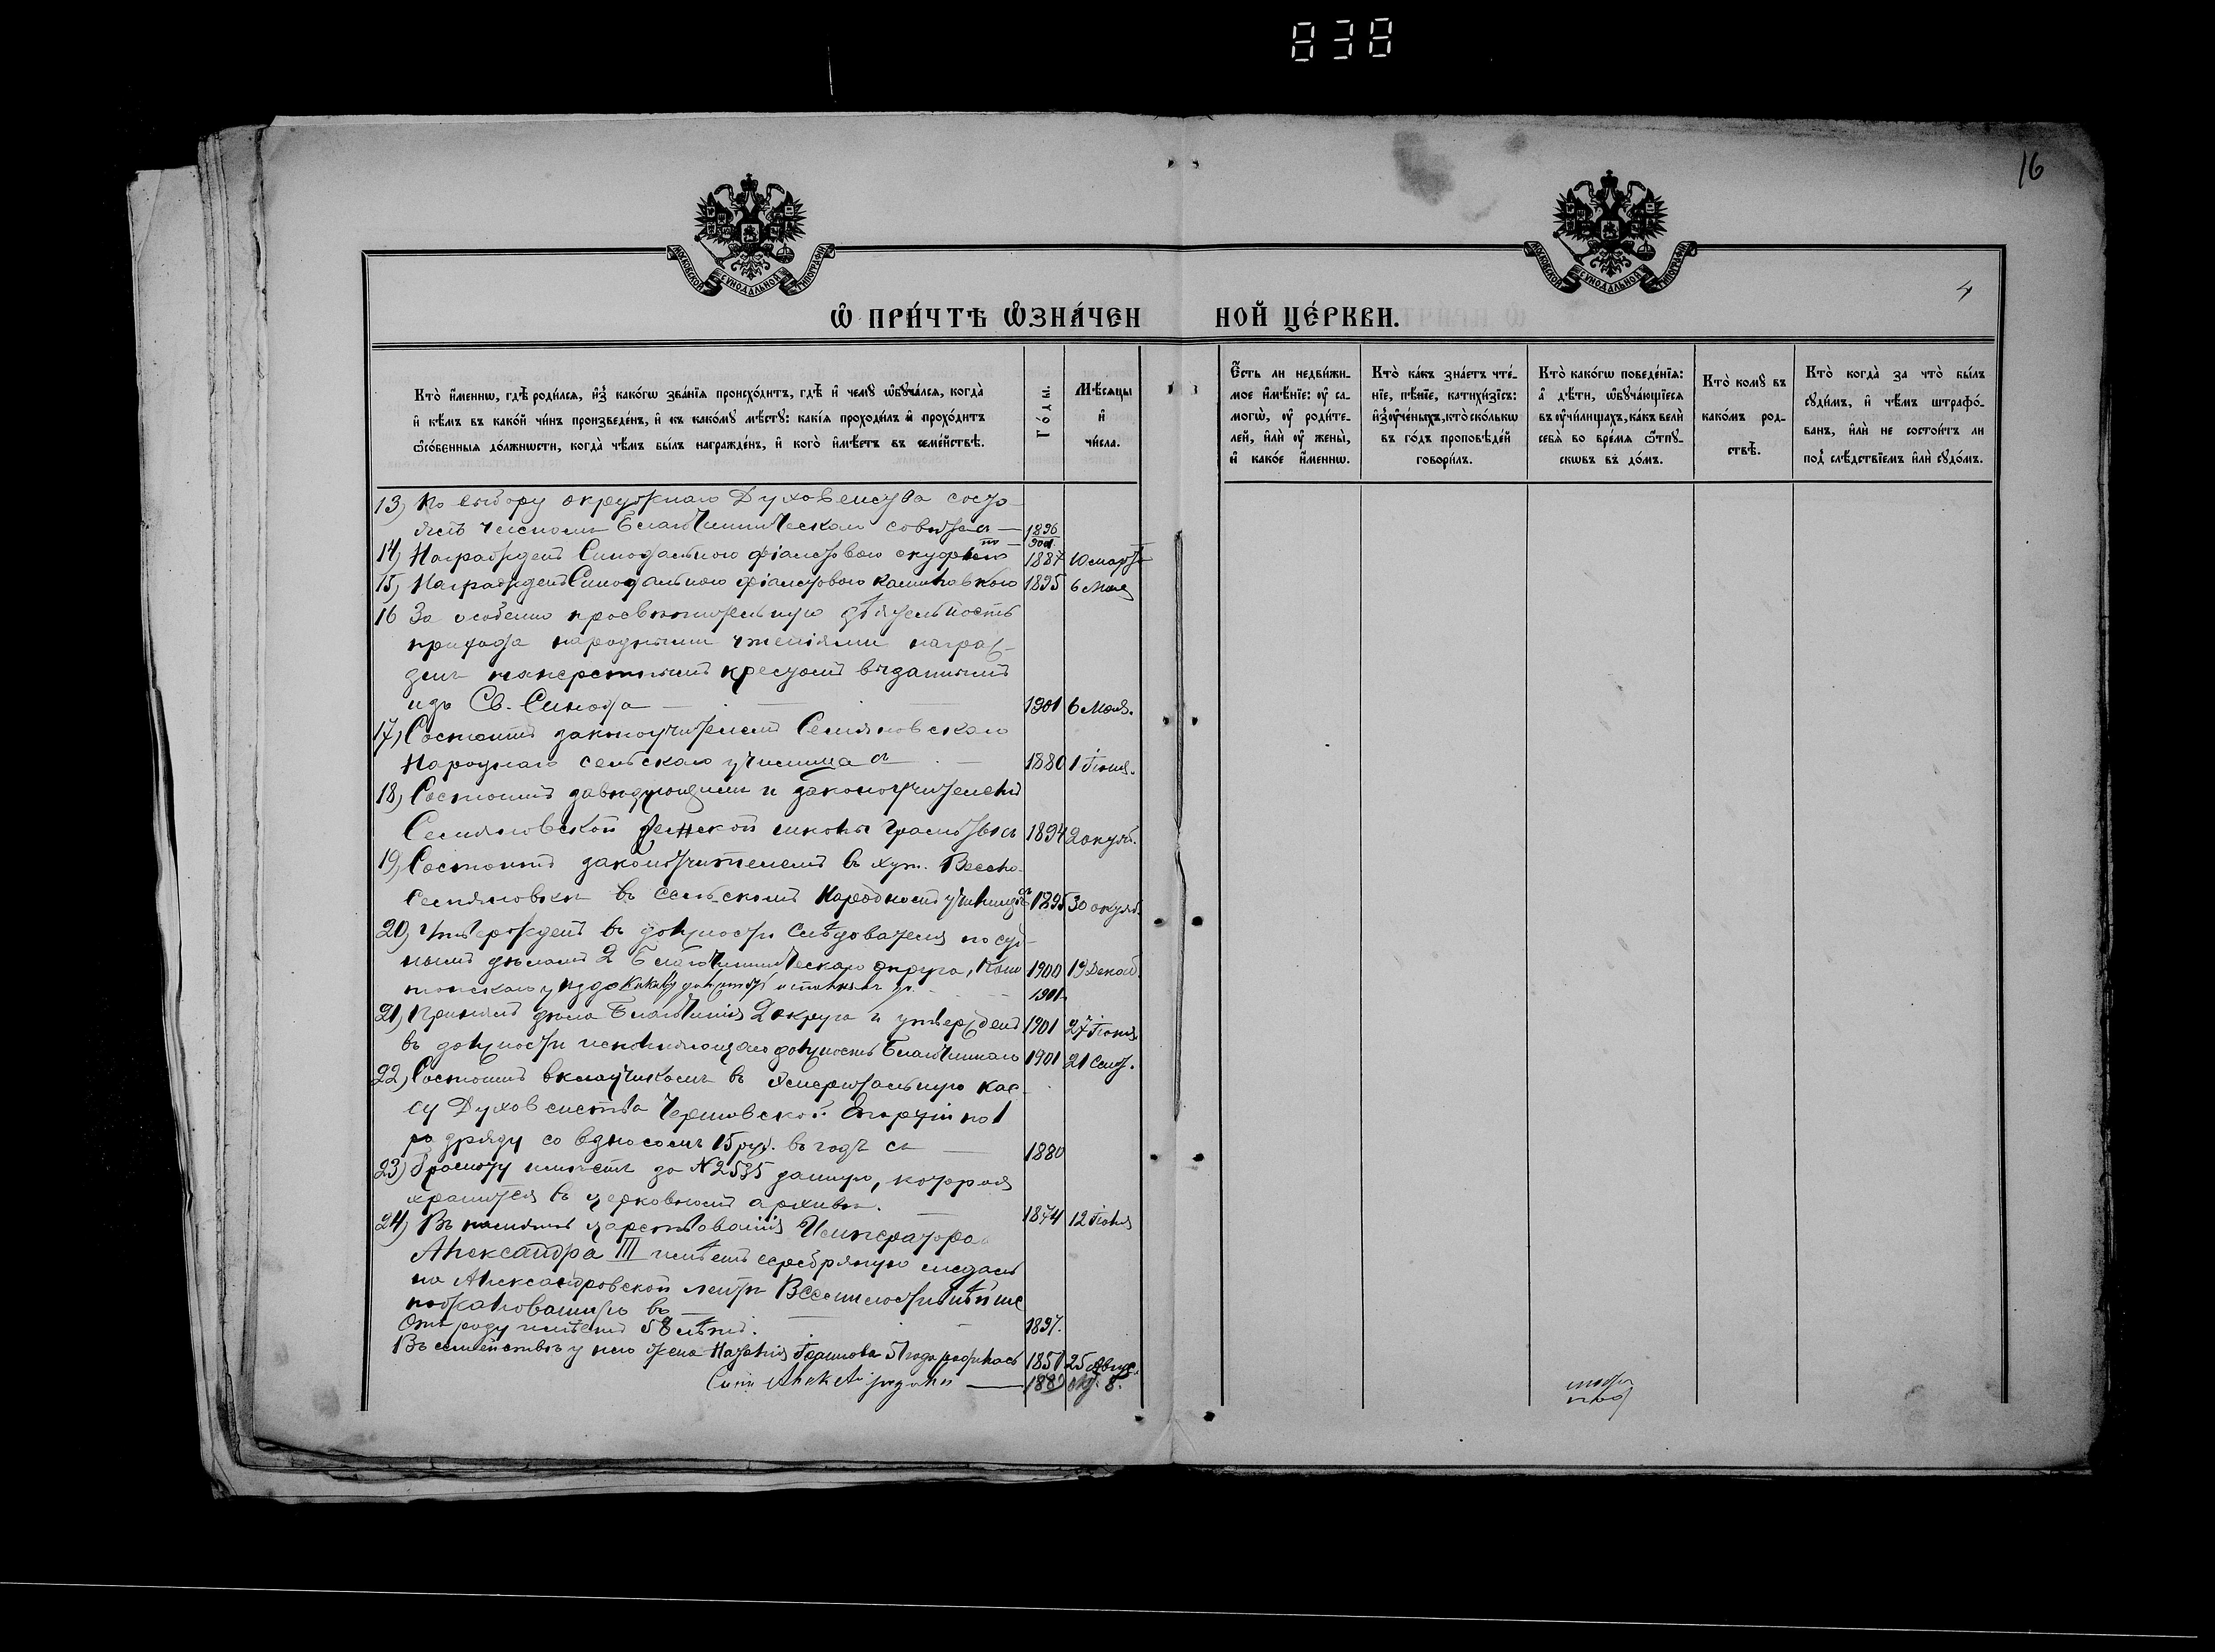 838
16
4
МОСКОВСКОЙ СѴНОДАЛЬНОЙ ТИПОГРАФІИ
МОСКОВСКОЙ СѴНОДАЛЬНОЙ ТИПОГРАФІИ
Ѡ ПРИ́ЧТѢ ѠЗНА́ЧЕННОЙ ЦЕ́РКВИ.
Кто̀ и҆́меннѡ, гдѣ̀ роди́лсѧ, и҆з̾ како́гѡ зва́нїѧ происхо́дитъ, гдѣ̀ и҆ чемꙋ̀ ѡ҆бꙋча́лсѧ, когда̀
и҆ кѣ́мъ въ како́й чи́нъ произведе́нъ, и҆ къ како́мꙋ мѣ́стꙋ: какі̑ѧ проходи́лъ и҆ прохо́дитъ
ѻ҆со́бенныѧ до́лжнѡсти, когда̀ чѣ́мъ бы́лъ награжде́нъ, и҆ кого̀ и҆мѣ́етъ въ семе́йствѣ.
Го́ды.
Мѣ́сѧцы
и҆
чи́сла.
Е҆́сть ли недви́жи-
мое и҆мѣ́нїе: ᲂу҆ са-
могѡ̀, ᲂу҆ роди́те-
лей, и҆лѝ ᲂу҆ жены̀,
и҆ како́е и҆́меннѡ.
Кто̀ ка́къ зна́етъ чте́-
нїе, пѣ́нїе, катихи́зїсъ:
и҆з̾ ᲂу҆че́ныхъ, кто̀ ско́лькѡ
въ го́дъ проповѣ́дей
говори́лъ.
Кто̀ како́гѡ поведе́нїѧ:
а҆ дѣ́ти, ѡ҆бꙋча́ющїесѧ
въ ᲂу҆чи́лищахъ, ка́къ велѝ
себѧ̀ во вре́мѧ ѿпꙋ-
скѡвъ въ до́мъ.
Кто̀ комꙋ̀ въ
како́мъ род-
ствѣ̀.
Кто̀ когда̀ за что̀ бы́лъ
сꙋди́мъ, и҆ чѣ́мъ штрафо́-
ванъ, и҆лѝ не состои́тъ ли
под̾ слѣ́дствїемъ и҆лѝ сꙋдо́мъ.
13) По выбору окружнаго Духовенства состо-
ялъ членомъ Благочинническаго совѣта съ — 1896 по 901
14) Награжденъ Синодальною фіалетовою скуфьею 1887 10 марта
15) Награжденъ Синодальною фіалетовою камилавкою 1895 6 Мая
16 За особенно просвѣтительную дѣятельность
прихода народными чтеніями награж-
денъ наперстнымъ крестомъ выданнымъ
изъ Св. Синода — 1901 6 Мая.
17) Состоитъ законоучителемъ Семяновскаго
Народнаго сельскаго училища съ — 1880 1 Іюня.
18) Состоитъ завѣдующимъ и законоучителемъ
Семяновской женской школы грамоты съ 1894 2 октяб.
19) Состоитъ законоучителемъ въ хут. Весело-
Семяновкѣ въ сельскомъ Народномъ училищѣ съ 1895 30 октяб.
20) Утвержденъ въ должности Слѣдователя по суд-
нымъ дѣламъ 2 Благочинническаго округа, 1900 19 Декаб.
уѣзда 1901
21) Принялъ дѣла Благочинія 2 округа и утвержденъ 1901 27 Іюня
въ должности исполняющаго должность Благочиннаго 1901 21 Сент.
22) Состоитъ вкладчикомъ въ эмеритальную кас-
су Духовенства Черниговской Епархіи по 1
разряду со взносомъ 15 руб. въ годъ съ — 1880
23) Грамоту имѣетъ за № 2535 данную, которая
хранится въ церковномъ архивѣ. 1874 12 Іюня
24) Въ память царствованія Императора
Александра III имѣетъ серебряную медаль
на Александровской лентѣ Всемилостивѣйше
пожалованную въ — 1897.
Отъ роду имѣетъ 58 лѣтъ.
Въ семействѣ у него жена Наталія 51 года родилась 1851 25 Авгус.
Сынъ 1889 8.